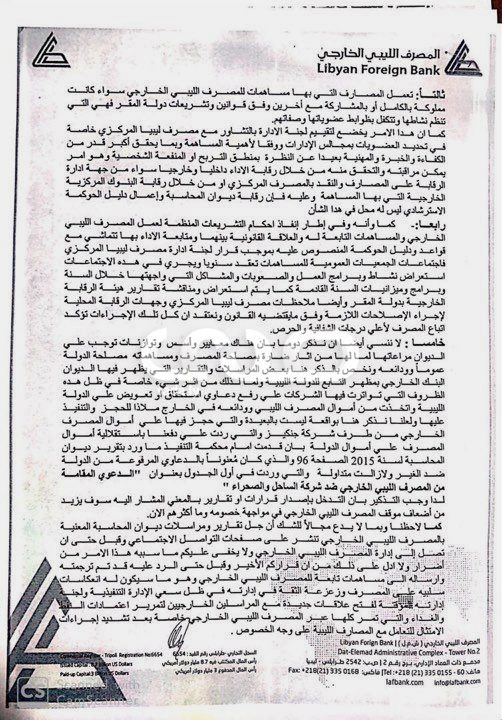 المصرف الليبي الخارجي
Libyan Foreign Bank
ثالثاً: تعمل المصارف التي بها مساهمات للمصرف الليبي الخارجي سواء كانت
مملوكة بالكامل أو بالمشاركة مع أخرين وفق قوانين وتشريعات دولة المقر فهي التي
تنظم نشاطها وتتكفل بظوابط عضوياتها وصفاتهم.
كما ان هذا الامر يخضع لتقييم لجنة الادارة بالتشاور مع مصرف ليبيا المركزي خاصة
في تحديد العضويات بمجالس الإدارات ووفقا لأهمية المساهمة وبما يحقق أكبر قدر من
الكفاءة والخبرة والمهنية بعيدا عن النظرة بمنطق التربح او المنفعة الشخصية وهو امر
يمكن مراقبته والتحقق منه من خلال رقابة الاداء داخليا وخارجيا سواء من جهة ادارة
الرقابة على المصارف والنقد بالمصرف المركزي او من خلال رقابة البنوك المركزية
الخارجية التي بها المساهمة وعليه فإن رقابة ديوان المحاسبة وإعمال دليل الحوكمة
الاسترشادي ليس له محل في هذا الشأن
رابعا:- كما وأنه وفي إطار إنفاذ احكام التشريعات المنظمة لعمل المصرف الليبي
الخارجي والمساهمات التابعة له والعلاقة القانونية بينهما ومتابعة الاداء بها تتماشي مع
قواعد ودليل الحوكمة المنصوص عليه بموجب قرار لجنة ادارة مصرف ليبيا المركزي
فاجتماعات الجمعيات العمومية للمساهمات تعقد سنويا ويجري في هذه الاجتماعات
استعراض نشاط وبرامج العمل والصعوبات والمشاكل التي واجهتها خلال السنة
وبرامج وميزانيات السنة القادمة كما يتم استعراض ومناقشة تقارير هيئة الرقابة
الخارجية بدولة المقر وأيضا ملاحظات مصرف ليبيا المركزي وجهات الرقابة المحلية
لإجراء الإصلاحات اللازمة وفق مايقتضيه القانون ونعتقد ان كل تلك الإجراءات تؤكد
اتباع المصرف لأعلي درجات الشفافية والحرص.
خامسا: لا ننسي أيضا ان نذكر دوما بان هناك معايير وأسس وتوازنات توجب على
الديوان مراعاتها لما لها من اثار ضارة بمصلحة المصرف ومساهماته ومصلحة الدولة
عموما وودائعه ونخص بالذكر هنا بعض المراسلات والتقارير التي يظهر فيها الديوان
البنك الخارجي بمظهر التابع للدولة الليبية ولما لذلك من اثر سيء خاصة في ظل هذه
الظروف التي تواترت فيها الشركات علي رفع دعاوي استحقاق أو تعويض علي الدولة
الليبية واتخذت من أموال المصرف الليبي وودائعه في الخارج ملاذا للحجز والتنفيذ
عليها ولعلنا نذكر هنا بواقعة ليست بالبعيدة والتي حجز فيها على أموال المصرف
الخارجي من طرف شركة جنكيز والتي ردت علي دفعنا باستقلالية أموال
المصرف علي أموال الدولة بان قدمت امام محكمة التنفيذ ما ورد بتقرير ديوان
المحاسبة لسنة 2015 الصفحة 96 والذي كان مُعنوناً بالدعاوي المرفوعة من الدولة
ضد الغير ولازالت متداولة والتي وردت في أول الجدول بعنوان " الدعوي المقامة
من المصرف الليبي الخارجي ضد شركة الساحل والصحراء "
لذا وجب التذكير بان التدخل بإصدار قرارات او تقارير بالمعني المشار اليه سوف يزيد
من إضعاف موقف المصرف الليبي الخارجي في مواجهة خصومه وما أكثرهم الان.
كما لاحظنا وبما لا يدع مجالاً للشك أن جل تقارير ومراسلات ديوان المحاسبة المعنية
بالمصرف الليبي الخارجي تنشر على صفحات التواصل الاجتماعي وقبل حتى ان
تصل إلى إدارة المصرف الليبي الخارجي ولا يخفى عليكم ما سببه هذا الامر من
أضرار ولا ادل على ذلك من ان قراركم الأخير وقبل حتى الرد عليه قد تم ترجمته
وارساله الى مساهمات تابعة للمصرف الليبي الخارجي وهو ما سيكون له انعكاسات
سلبية على المصرف وزعزعة الثقة في إدارته في ظل سعي الإدارة التنفيذية ولجنة
إدارته لفتح علاقات جديدة مع المراسلين الخارجيين لتمرير اعتمادات النفط
والغذاء والتي تمر كلها عبر المصرف الليبي الخارجي خاصة بعد تشديد إجراءات
الامتثال للتعامل مع المصارف الليبية على وجه الخصوص.
Tripoli Registration No:6654
رأس المال المكتتب فيه 8.7 مليار دولار أمريكي
Paid-up Capital:3 Billion US Dollars
Libyan Foreign Bank
Dat-Elemad Administrative Complex - Tower No.2
مجمع ذات العماد الإداري برج رقم 2 | ص.ب 2542 طرابلس - ليبيا
هاتف: 60 - 0155 335 (21)218+ Tel | Fax: +218(21) 335 0168
lafbank.com info@lafbank.com
CS